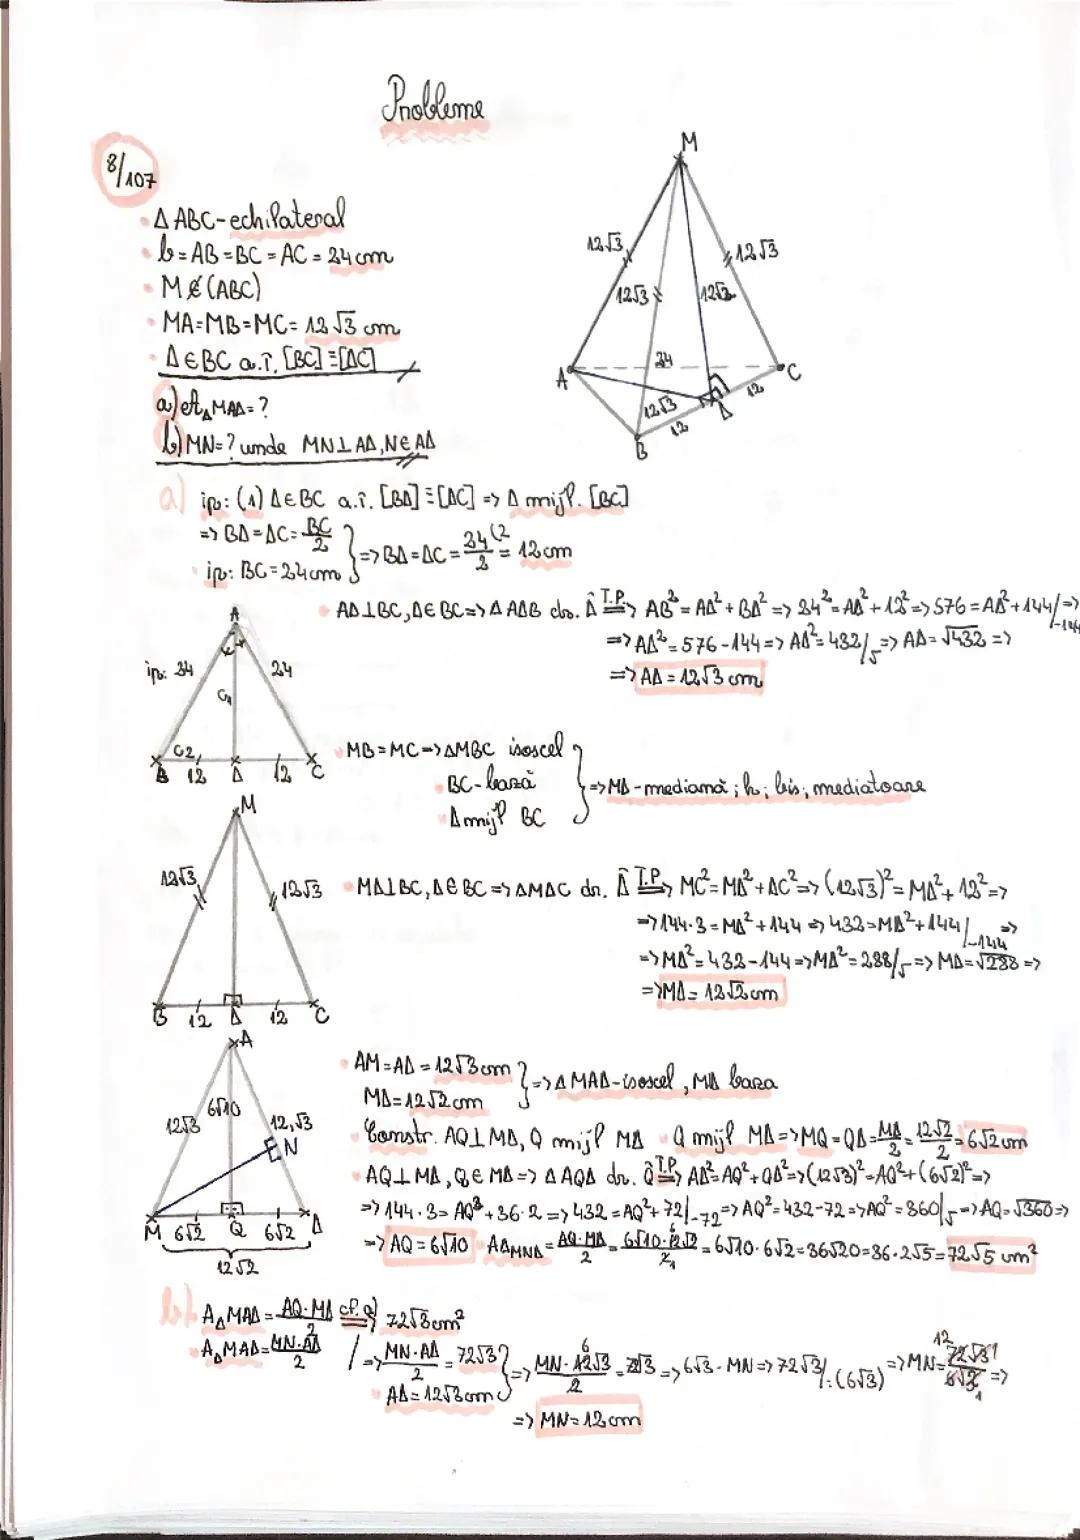 Probleme
8/107
Δ ABC-echilateral
b=AB=BC=AC=24cm
M∉(ABC)
MA=MB=MC=12√3 cm
Δ∈BC a.î. [BC]≡[ΔC]
a) A△MAΔ=?
b) MN=? unde MN⊥AΔ, N∈AΔ
M
12√3
12√3
12√3
12√2
24
A
C
12√3
12
12
Δ
B
a) ip: (1) Δ∈BC a.î. [BΔ]≡[ΔC] => Δ mijl. [BC]
=> BΔ=ΔC=BC/2
ip: BC=24cm } => BΔ=ΔC=24/2=12cm
A
ip: 24
24
C1
C2
B 12 Δ 12 C
AΔ⊥BC, Δ∈BC => Δ AΔB dr. Δ̂ T.P.=> AB²=AΔ²+BΔ² => 24²=AΔ²+12² => 576=AΔ²+144/-144 =>
=> AΔ²=576-144 => AΔ²=432/√ => AΔ=√432 =>
=> AΔ=12√3 cm
MB=MC => ΔMBC isoscel
BC-bază
Δ mijl BC } => MΔ-mediană; h; bis; mediatoare
M
12√3
12√3
B 12 Δ 12 C
MΔ⊥BC, Δ∈BC => ΔMΔC dr. Δ̂ T.P.=> MC²=MΔ²+ΔC² => (12√3)²=MΔ²+12² =>
=> 144·3=MΔ²+144 => 432=MΔ²+144/-144 =>
=> MΔ²=432-144 => MΔ²=288/√ => MΔ=√288 =>
=> MΔ=12√2cm
A
12√3
6√10
12√3
N
M 6√2 Q 6√2 Δ
12√2
AM=AΔ=12√3cm
MΔ=12√2cm } => Δ MAΔ-isoscel, MΔ baza
Constr. AQ⊥MΔ, Q mijl MΔ Q mijl MΔ => MQ=QΔ=MΔ/2=12√2/2=6√2cm
AQ⊥MΔ, Q∈MΔ => Δ AQΔ dr. Q̂ T.P.=> AΔ²=AQ²+QΔ² => (12√3)²=AQ²+(6√2)² =>
=> 144·3=AQ²+36·2 => 432=AQ²+72/-72 => AQ²=432-72 => AQ²=360/√ => AQ=√360 =>
=> AQ=6√10 AΔMNΔ=AQ·MΔ/2=6√10·12√2/2=6√10·6√2=36√20=36·2√5=72√5 cm²
b) A△MAΔ=AQ·MΔ/2 cf. a) 72√3cm²
A△MAΔ=MN·AΔ/2 / => MN·AΔ/2=72√3
AΔ=12√3cm } => MN·12√3/2=72√3 => 6√3·MN => 72√3/:(6√3) => MN=72√3/6√3 =>
=> MN=12cm